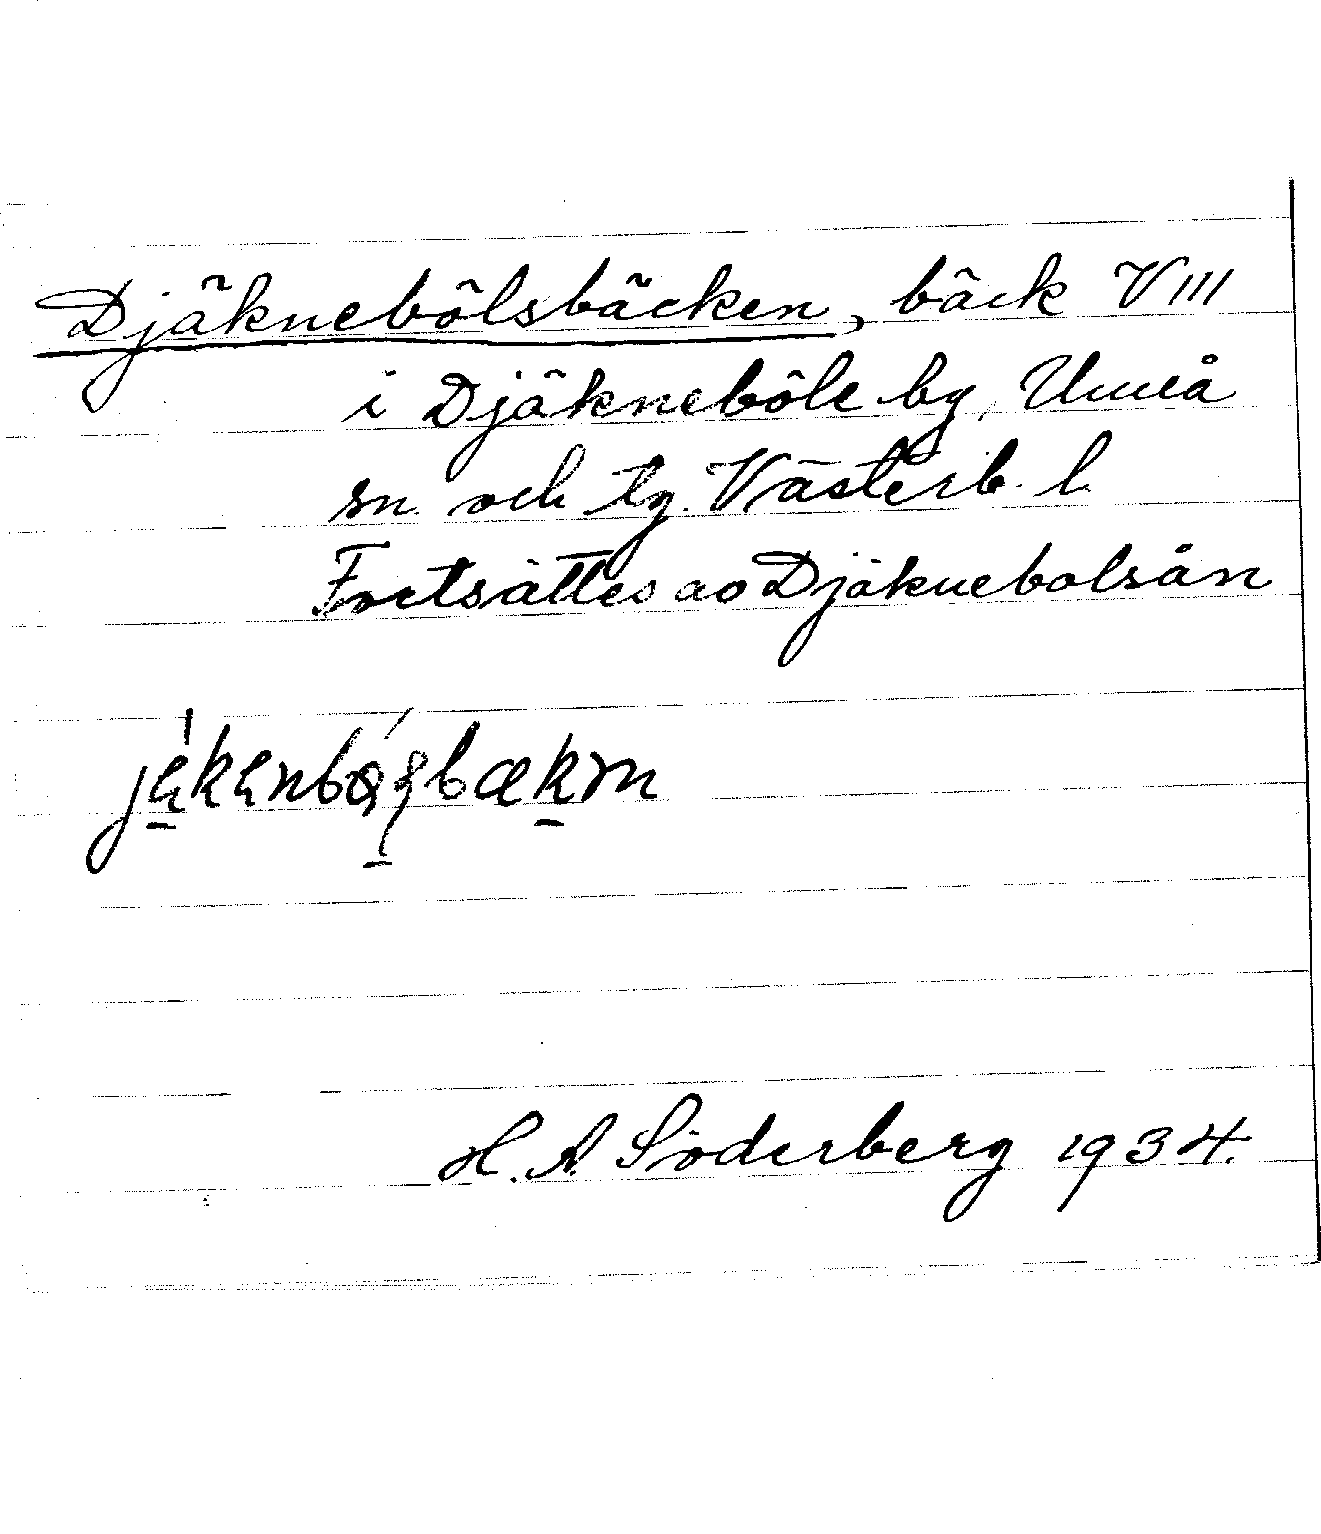 Djäknebölsbäcken, bäck VIII
i Djäkneböle by, Umeå
sn. och tg. Västerb. l.
Fortsättes av Djäknebolsån
H. A. Söderberg 1934.